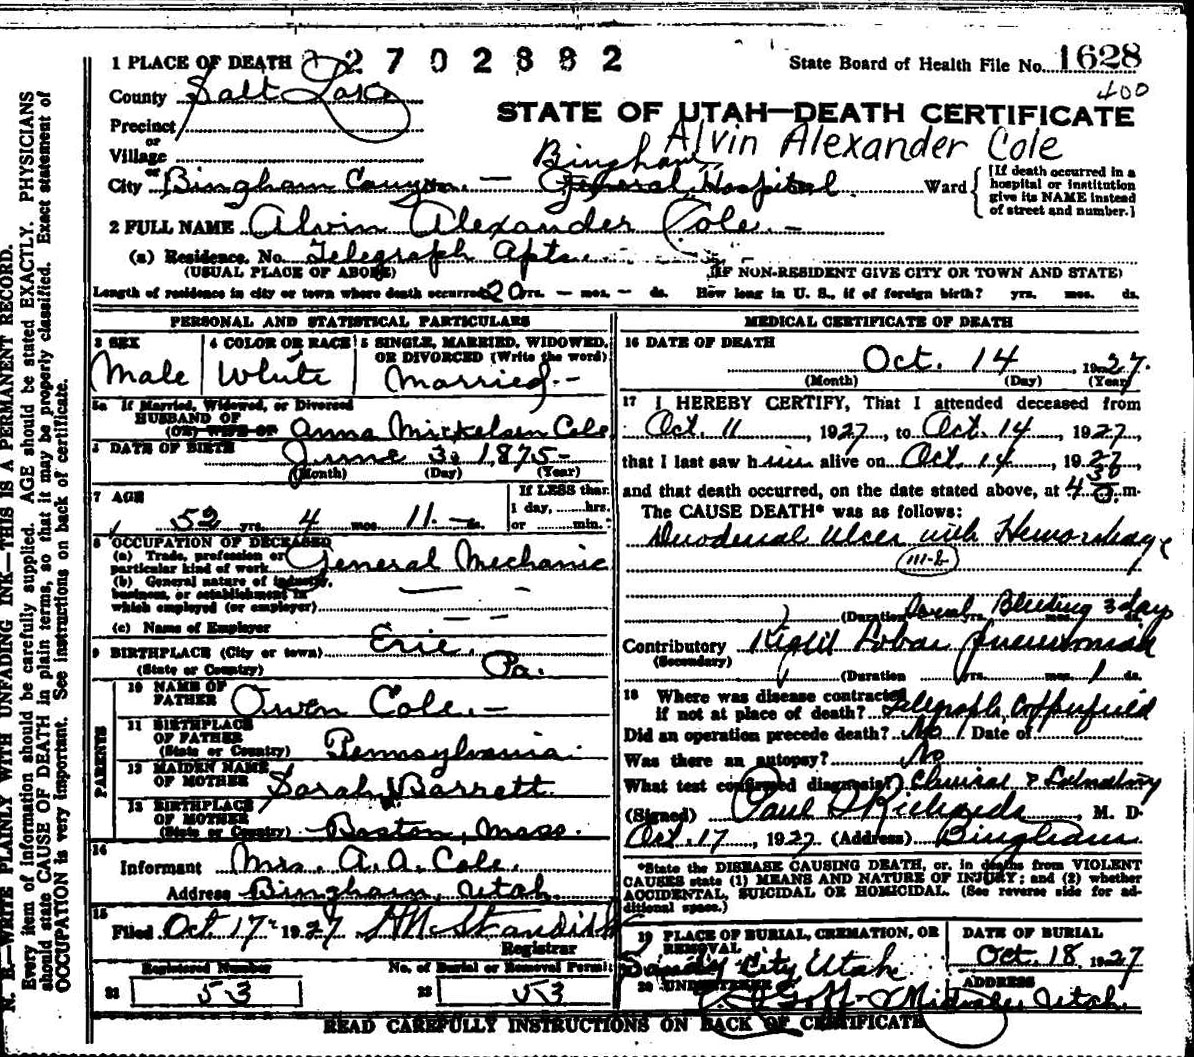 1 PLACE OF DEATH 2702882 State Board of Health File No. 1628
County Salt Lake 400
STATE OF UTAH—DEATH CERTIFICATE
Precinct
or
Village
Alvin Alexander Cole
Bingham
City or Bingham Canyon. — General Hospital Ward
[If death occurred in a hospital or institution give its NAME instead of street and number.]
2 FULL NAME Alvin Alexander Cole. —
(a) Residence. No. Telegraph Apts.
(USUAL PLACE OF ABODE) (IF NON-RESIDENT GIVE CITY OR TOWN AND STATE)
Length of residence in city or town where death occurred 20 yrs. — mos. — ds. How long in U. S., if of foreign birth? yrs. mos. ds.
PERSONAL AND STATISTICAL PARTICULARS
3 SEX 4 COLOR OR RACE 5 SINGLE, MARRIED, WIDOWED, OR DIVORCED (Write the word)
Male White Married. —
5a If Married, Widowed, or Divorced
HUSBAND OF
(OR) WIFE OF Anna Mickelsen Cole
6 DATE OF BIRTH June 3, 1875 —
(Month) (Day) (Year)
7 AGE If LESS than
1 day, hrs.
52 yrs. 4 mos. 11 — ds. or min.
8 OCCUPATION OF DECEASED
(a) Trade, profession or
particular kind of work General Mechanic
(b) General nature of industry,
business, or establishment in
which employed (or employer)
(c) Name of Employer
9 BIRTHPLACE (City or town) Erie,
(State or Country) Pa.
PARENTS
10 NAME OF
FATHER Owen Cole. —
11 BIRTHPLACE
OF FATHER
(State or Country) Pennsylvania.
12 MAIDEN NAME
OF MOTHER Sarah Barrett.
13 BIRTHPLACE
OF MOTHER
(State or Country) Boston, Mass.
14
Informant Mrs. A. A. Cole.
Address Bingham, Utah.
15
Filed Oct 17 1927 H N Standish
Registrar
Registered Number No. of Burial or Removal Permit
21 53 22 53
MEDICAL CERTIFICATE OF DEATH
16 DATE OF DEATH
Oct. 14, 1927.
(Month) (Day) (Year)
17 I HEREBY CERTIFY, That I attended deceased from
Oct. 11, 1927, to Oct. 14, 1927,
that I last saw him alive on Oct. 14, 1927
and that death occurred, on the date stated above, at 4 30 m.
The CAUSE DEATH* was as follows:
Duodenal Ulcer with Hemorrhage
111-b
(Duration yrs. Bleeding 3 days
Contributory Right Lobar pneumonia
(Secondary)
(Duration yrs. mos. 1 ds.
18 Where was disease contracted
if not at place of death? Telegraph, Copperfield
Did an operation precede death? No Date of
Was there an autopsy? No
What test confirmed diagnosis? Clinical & Laboratory
(Signed) Paul S Richards, M. D.
Oct. 17, 1927 (Address) Bingham
*State the DISEASE CAUSING DEATH, or, in deaths from VIOLENT
CAUSES state (1) MEANS AND NATURE OF INJURY; and (2) whether
ACCIDENTAL, SUICIDAL OR HOMICIDAL. (See reverse side for ad-
ditional space.)
19 PLACE OF BURIAL, CREMATION, OR
REMOVAL DATE OF BURIAL
Sandy City Utah Oct. 18, 1927
20 UNDERTAKER ADDRESS
Goff Midvale, Utah.
READ CAREFULLY INSTRUCTIONS ON BACK OF CERTIFICATE
N. B.—WRITE PLAINLY WITH UNFADING INK—THIS IS A PERMANENT RECORD.
Every item of information should be carefully supplied. AGE should be stated EXACTLY. PHYSICIANS
should state CAUSE OF DEATH in plain terms, so that it may be properly classified. Exact statement of
OCCUPATION is very important. See instructions on back of certificate.